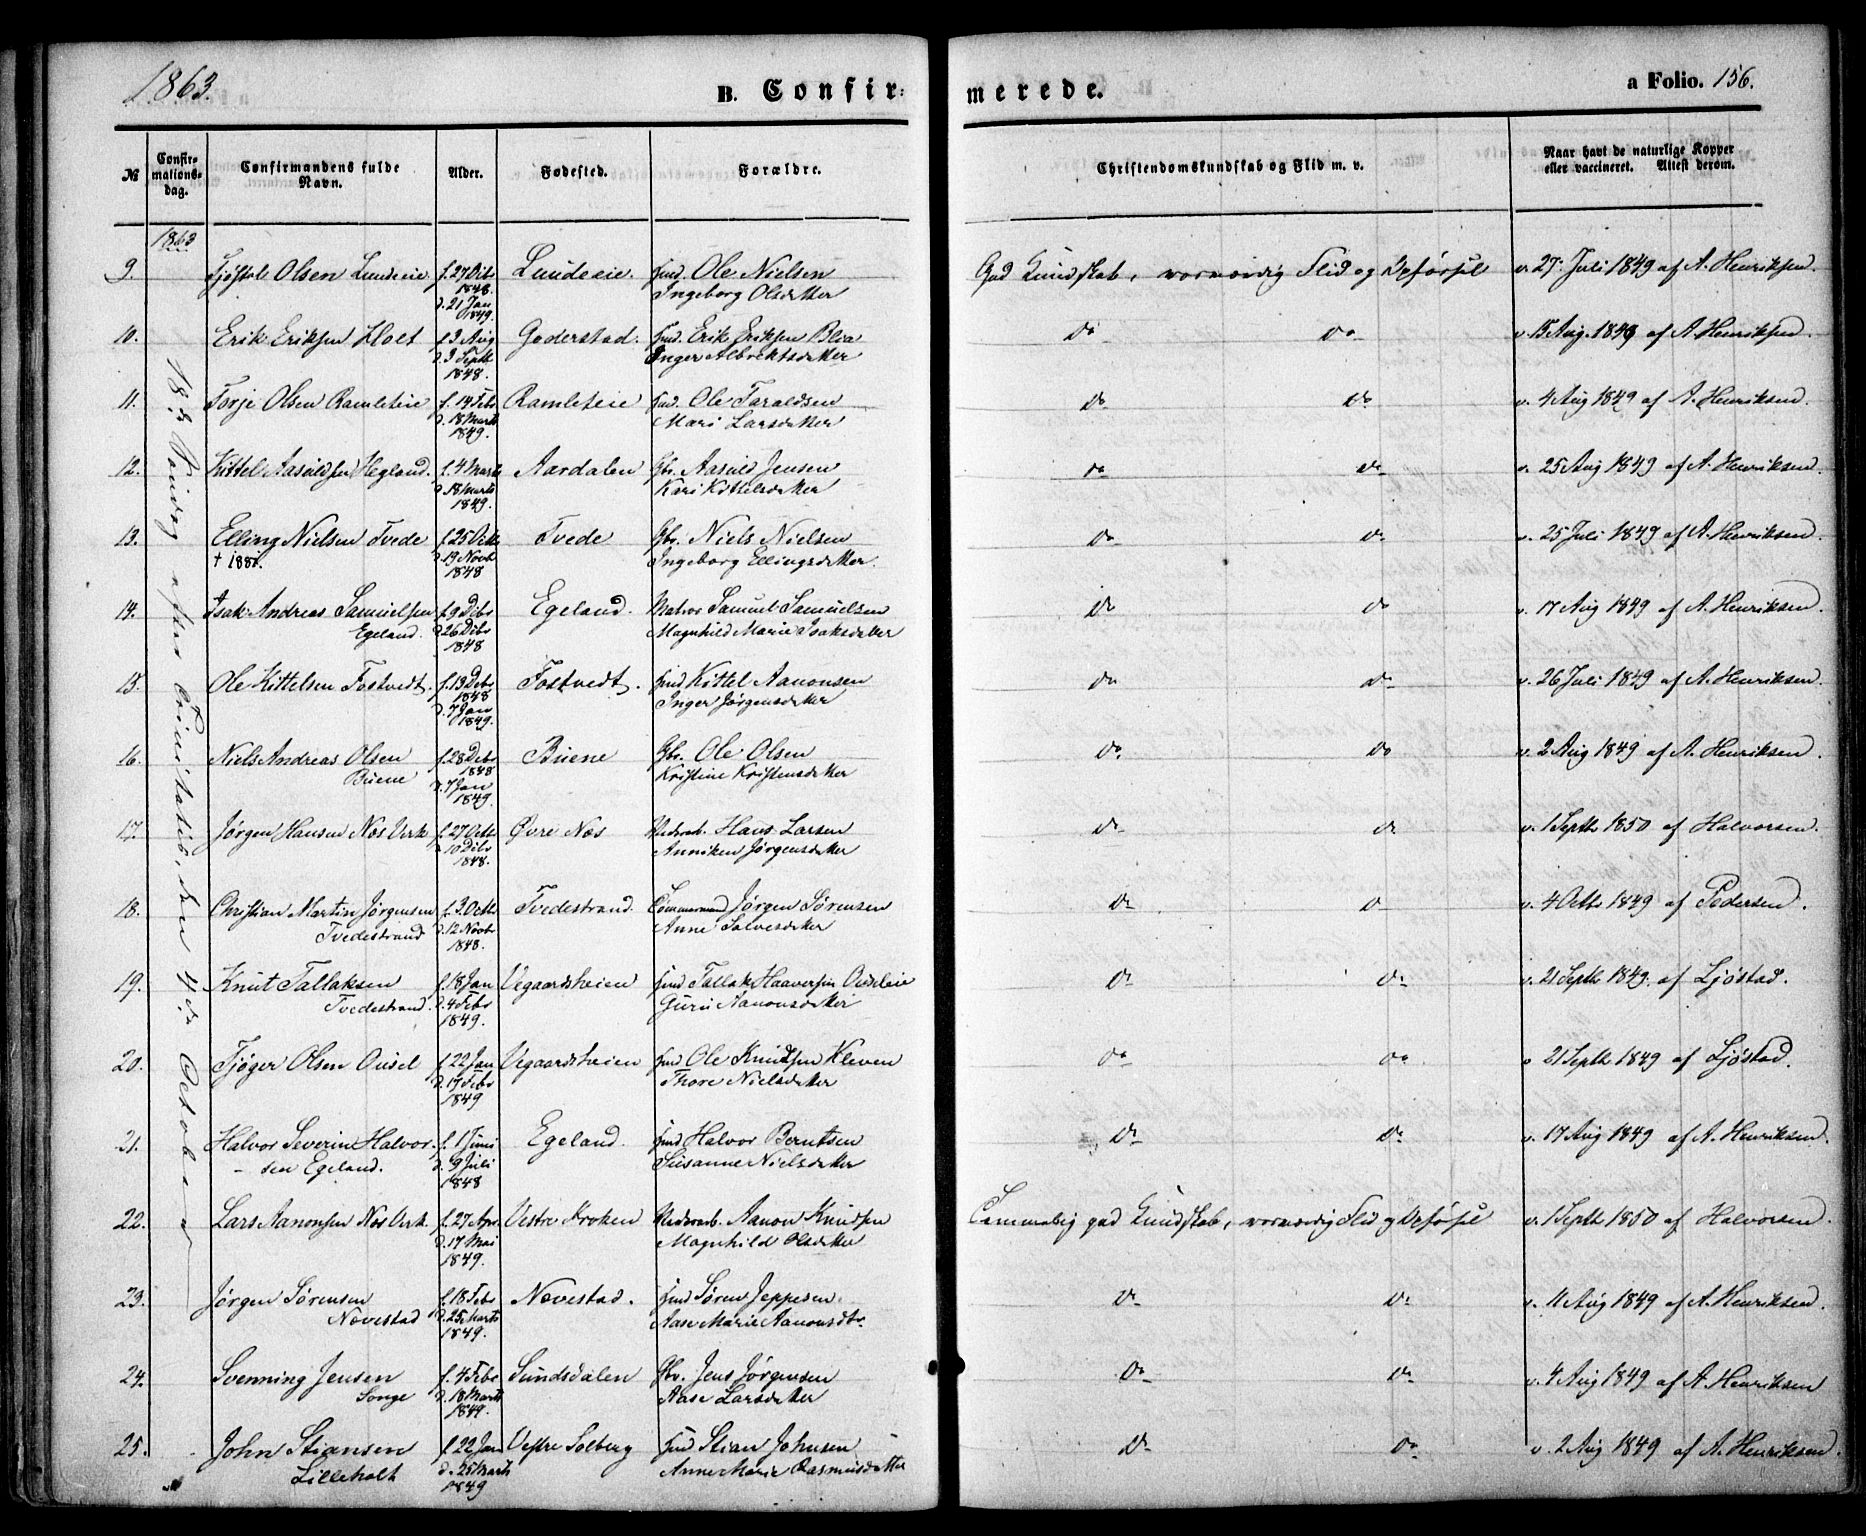 1863.
B. Confir-
merede.
a Folio. 156.
№
Confir-
mations-
dag.
Confirmandens fulde
Navn.
Alder.
Fødested.
Forældre.
Christendomskundskab og Flid m. v.
Naar havt de naturlige Kopper
eller vaccineret. Attest derom.
1863
18de Søndag efter Trinitatis, den 4de October
9. Tjøstol Olsen Lundeeie f. 27 Dcbr Lundeeie. Hmd. Ole Nielsen God Kundskab, værdig Flid og Opførsel v. 27. Juli 1849 af A. Henriksen.
1848. Ingeborg Olsdatter
d. 21 Jan
1849.
10. Erik Eriksen Holt f. 3 Aug Goderstad. Hmd. Erik Eriksen Do Do v. 15 Aug. 1849 af A. Henriksen.
d. 3 Septb Inger Albrektsdatter
1848.
11. Torje Olsen Ramleteie f. 14 Febr Ramleteie Hmd. Ole Taraldsen do do v. 4 Aug 1849 af A. Henriksen.
d. 18 Marts Mari Larsdatter
1849.
12. Kittel Aasuldsen Hegland. f. 4 Marts Aardalen Gbr. Aasuld Jensen do do v. 25 Aug 1849 af A. Henriksen.
d. 18 Marts Kari Kittelsdatter
1849.
13. Elling Nielsen Tvede f. 25 Octb Tvede Gbr. Niels Nielsen do do v. 25 Juli 1849 af A. Henriksen.
† 1881. d. 19 Novb Ingeborg Ellingsdatter.
1848
14. Isak Andreas Samuelsen f. 9 Dcbr Egeland. Matros Samuel Samuelsen do do v. 17 Aug 1849 af A. Henriksen.
Egeland. d. 26 Dcbr Magnhild Marie Isaksdatter
1848
15. Ole Kittelsen Fostvedt. f. 13 Dcbr Fostvedt. Hmd Kittel Aanonsen do do v. 26 Juli 1849 af A. Henriksen.
1848 Inger Jørgensdatter
d. 7 Jan
1849.
16. Niels Andreas Olsen f. 28 Dcbr Buene Gbr. Ole Olsen do do v. 2 Aug 1849 af A. Henriksen.
Buene 1848 Kristine Kristensdatter
d. 7 Jan
1849.
17. Jørgen Hansen Næs Verk f. 27 Octb Øvre Næs Hans Larsen do do v. 1 Septb 1850 af Halvorsen.
d. 10 Dcbr Anniken Jørgensdatter
1848.
18. Christian Martin Jørgensen f. 3. Octb Tvedestrand. Tømmermand Jørgen Sørensen do do v. 4 Octb 1849 af Pedersen.
Tvedestrand d. 12 Novb Anne Salvesdatter
1848.
19. Knut Tallaksen f. 18 Jan Vegaardsheien Hmd Tallak Haaversen do do v. 21 Septb 1849. af Ljøstad.
Tvedestrand. d. 4 Febr Guru Aanonsdatter
1849.
20. Tjøger Olsen Ousel f. 22 Jan Vegaardsheien Hmd Ole Knudsen Kleven do do v 21 Septb 1849 af Ljøstad.
d. 17 Febr Thore Nielsdatter
1849
21. Halvor Severin Halvor- f. 1 Juni Egeland. Hmd Halvor Berntsen do do v. 17 Aug 1849 af A. Henriksen.
sen Egeland. d. 9 Juli Susanne Nielsdatter
1848
22. Lars Aanonsen Næs Verk. f. 27 Apr. Vestre Kroken Aanon Knudsen Temmelig god Kundskab, værdig Flid og Opførsel v. 1 Septb 1850 af Halvorsen.
d. 17 Mai Magnhild Olsdatter
1849.
23. Jørgen Sørensen f. 18 Febr Nævestad. Hmd Søren Jeppesen do do v. 11 Aug 1849 af A. Henriksen.
Nævestad d. 25 Marts Aase Marie Aanonsdtr.
1849.
24. Svenning Jensen f. 4 Febr Sundsdalen Gbr. Jens Jørgensen do do v. 4 Aug 1849 af A. Henriksen
Songe d. 18 Marts Aase Larsdatter
1849.
25. John Stiansen f. 22 Jan Vestre Solberg Hmd Stian Johnsen do do v. 2 Aug 1849 af A. Henriksen.
Lilleholt d. 25 Marts Anne Marie Rasmusdatter
1849